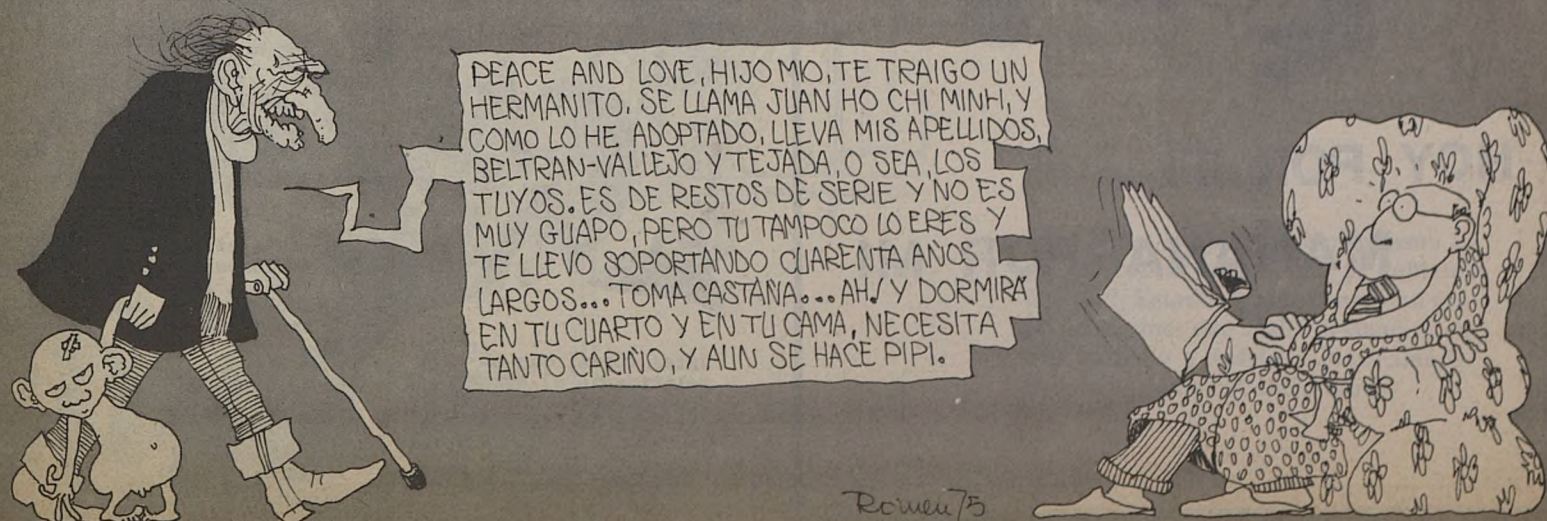 PEACE AND LOVE, HIJO MIO, TE TRAIGO UN
HERMANITO. SE LLAMA JUAN HO CHI MINH, Y
COMO LO HE ADOPTADO, LLEVA MIS APELLIDOS,
BELTRAN-VALLEJO Y TEJADA, O SEA, LOS
TUYOS. ES DE RESTOS DE SERIE Y NO ES
MUY GUAPO, PERO TU TAMPOCO LO ERES Y
TE LLEVO SOPORTANDO CUARENTA AÑOS
LARGOS... TOMA CASTAÑA... AH! Y DORMIRÁ
EN TU CUARTO Y EN TU CAMA, NECESITA
TANTO CARIÑO, Y AUN SE HACE PIPI.
Romeu 75